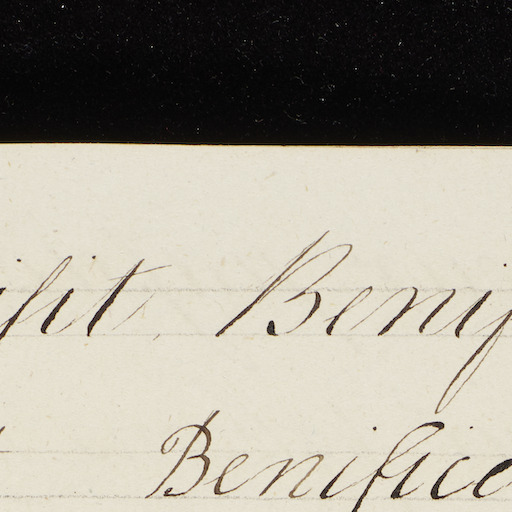 ifit. Benif
Benifice